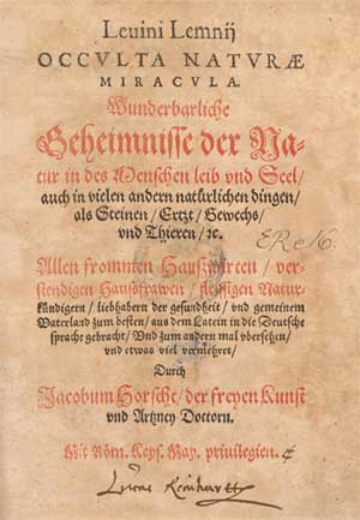 Leuini Lemnij
OCCVLTA NATVRÆ
MIRACVLA.
Wunderbarliche
Geheimnisse der Na-
tur in des Menschen leib vnd Seel/
auch in vielen andern natürlichen dingen/
als Steinen/ Ertzt/ Gewechs/
vnd Thieren/ ꝛc.
Allen frommen Hauszwirten/ ver-
stendigen Hauszfrawen/ fleyssigen Natur-
kündigern/ liebhabern der gesundheit/ vnd gemeinem
Vaterland zum besten/ aus dem Latein in die Deutsche
sprache gebracht/ Vnd zum andern mal vbersehen/
vnd etwas viel vermehret/
Durch
Jacobum Horscht/ der freyen Kunst
vnd Artzney Doctorn.
Mit Röm. Keys. May. priuilegien.
Lucas Reinhart